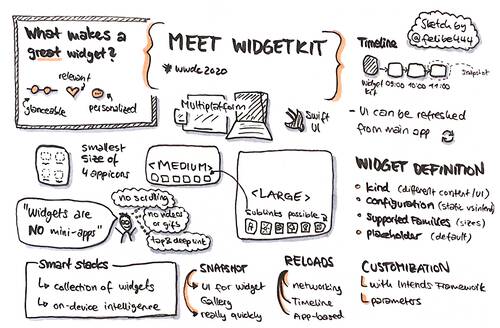 What makes a
great widget?
relevant
glanceable
personalized
MEET WIDGETKIT
# wwdc2020
Multiplatform
Swift
UI
Sketch by
@felibe444
Timeline
Widget
Kit
09:00 10:00 11:00
Snapshot
- UI can be refreshed
from main app
smallest
size of
4 appicons
<MEDIUM>
<LARGE>
sublinks possible
"Widgets are
NO mini-apps"
no scrolling
no videos
or gifs
tap & deeplink
WIDGET DEFINITION
kind (different content/UI)
Configuration (static vs intend)
Supported Families (sizes)
placeholder (default)
Smart stacks
collection of widgets
on-device intelligence
SNAPSHOT
UI for widget
Gallery
really quickly
RELOADS
networking
Timeline
App-based
CUSTOMIZATION
with Intends Framework
parameters